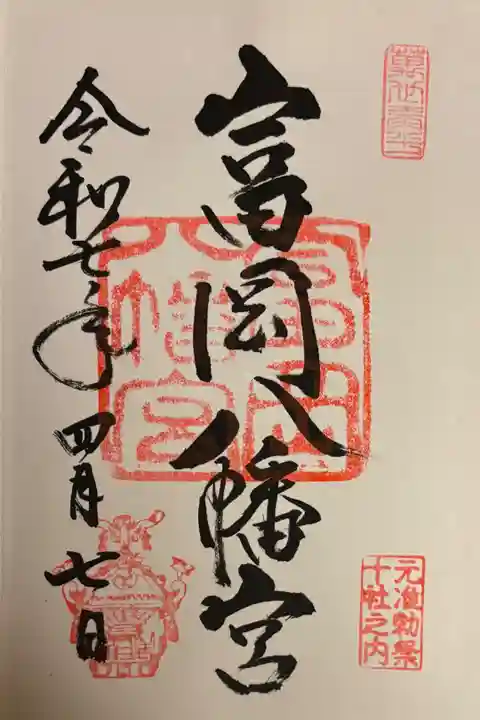 富岡八幡宮
令和七年四月七日
富岡
八幡宮
元准勅祭
十社之内